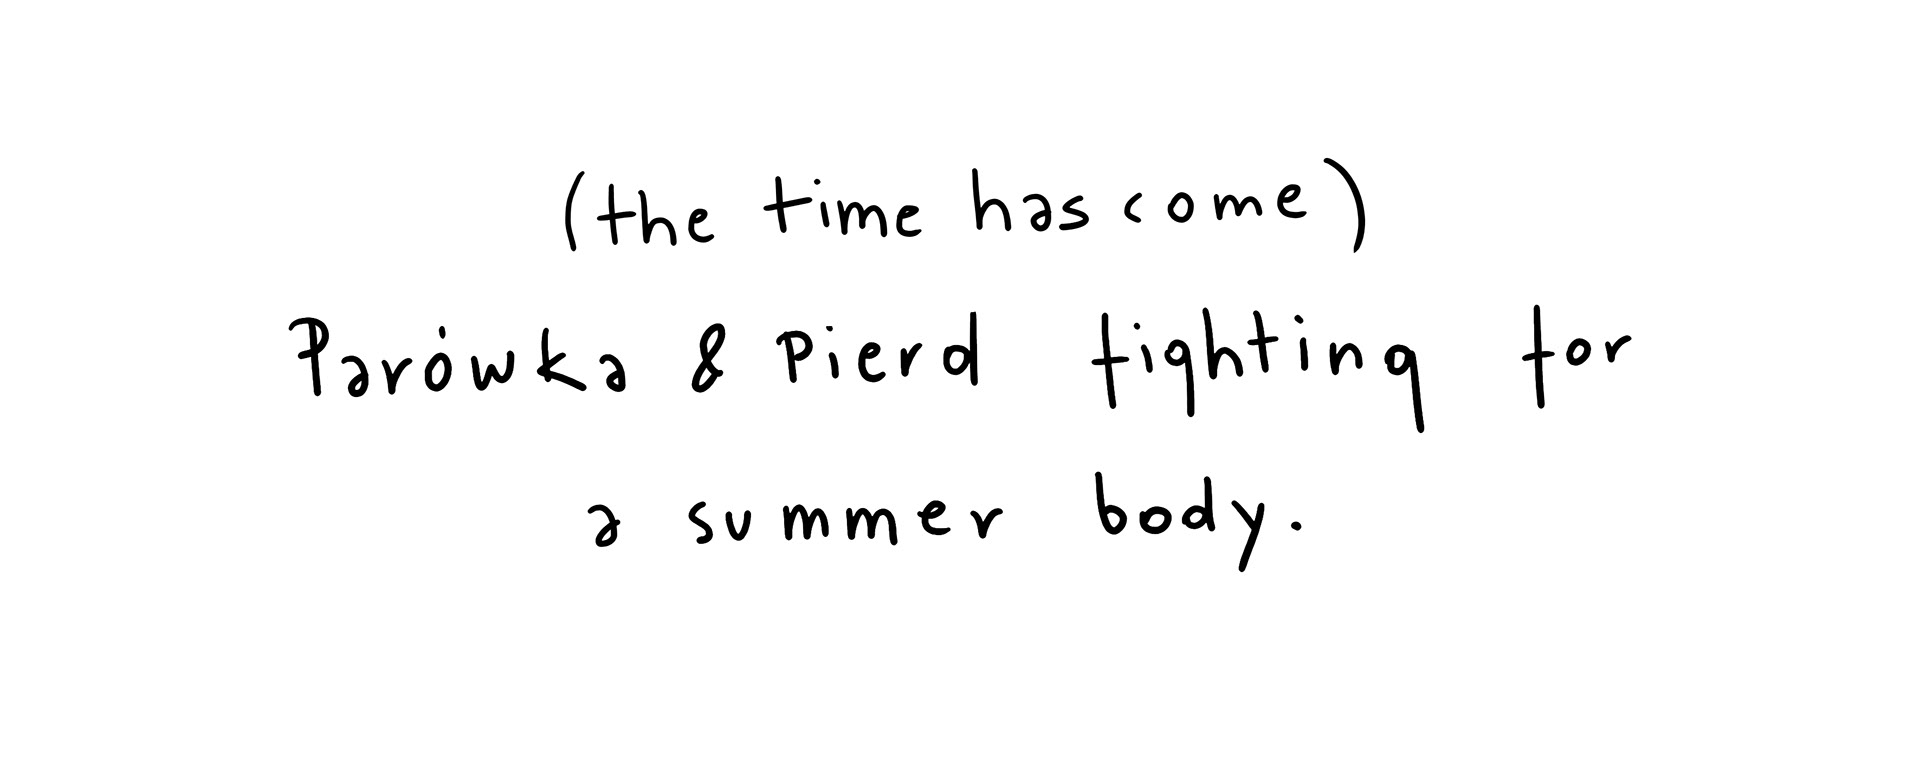 (the time has come)
Parówka & Pierd fighting for
a summer body.